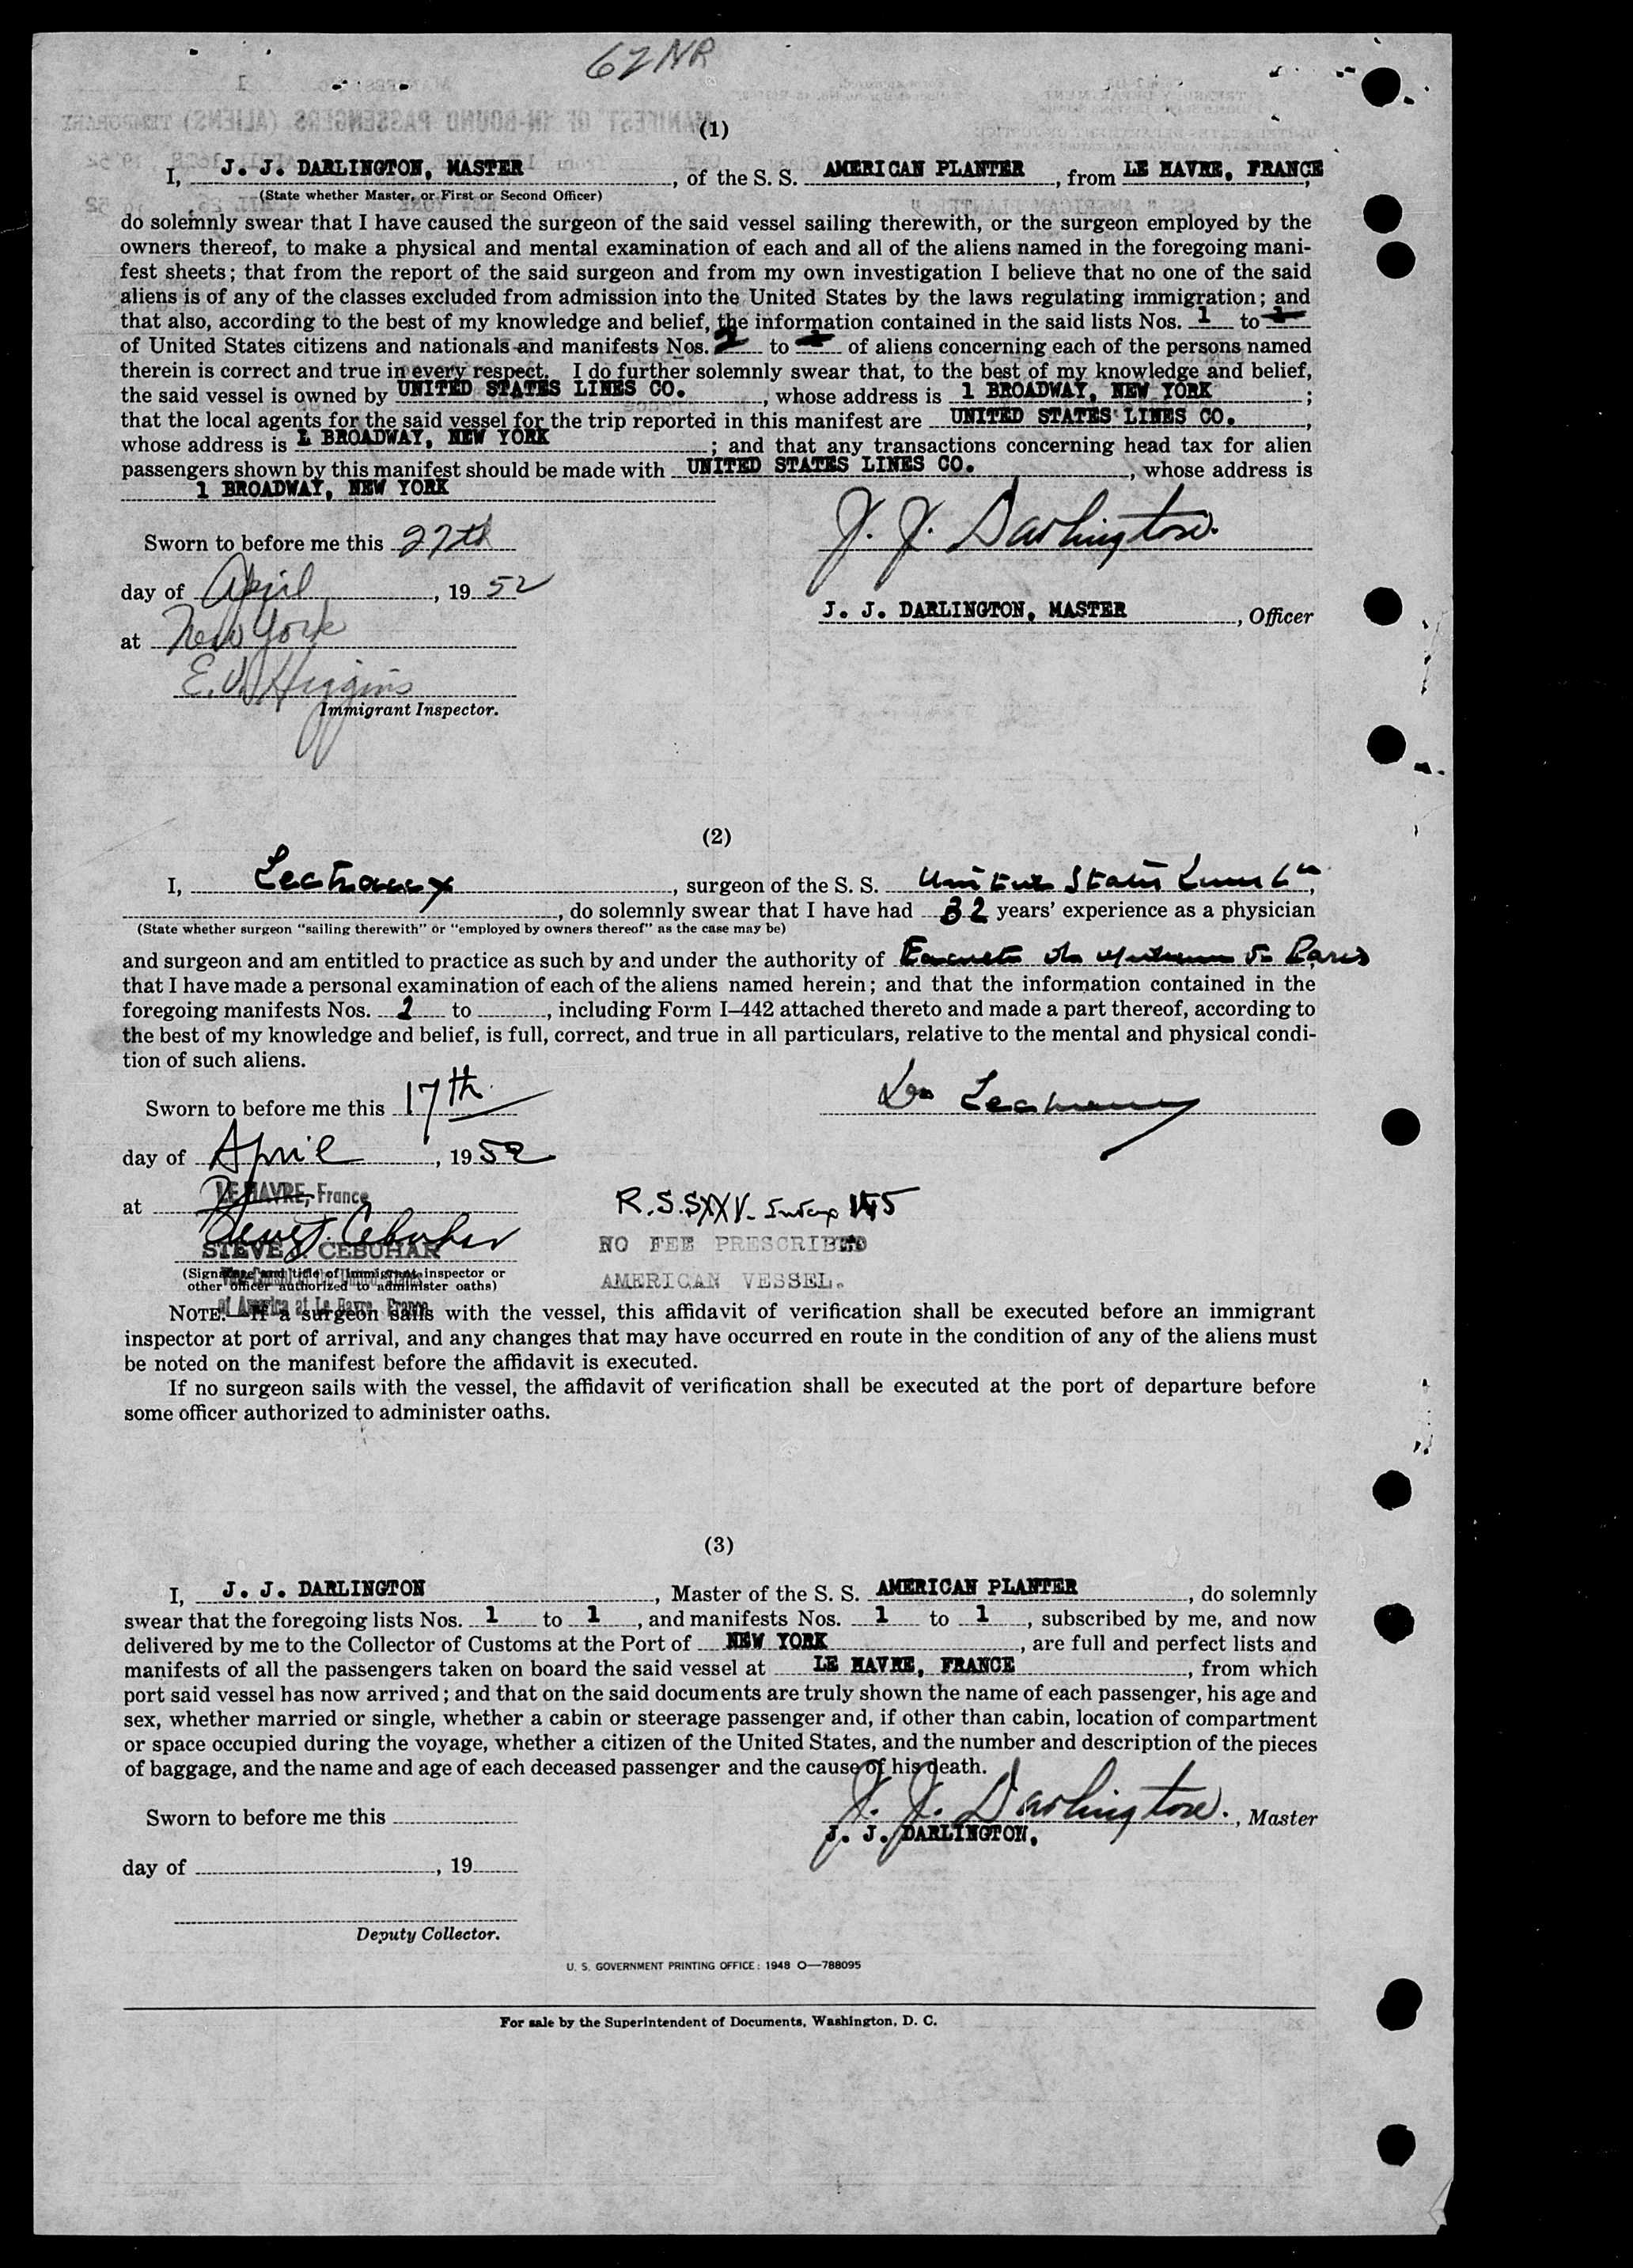 62NR
(1)
I, J. J. DARLINGTON, MASTER, of the S. S. AMERICAN PLANTER, from LE HAVRE, FRANCE,
(State whether Master, or First or Second Officer)
do solemnly swear that I have caused the surgeon of the said vessel sailing therewith, or the surgeon employed by the
owners thereof, to make a physical and mental examination of each and all of the aliens named in the foregoing mani-
fest sheets; that from the report of the said surgeon and from my own investigation I believe that no one of the said
aliens is of any of the classes excluded from admission into the United States by the laws regulating immigration; and
that also, according to the best of my knowledge and belief, the information contained in the said lists Nos. 1 to 1
of United States citizens and nationals and manifests Nos. to of aliens concerning each of the persons named
therein is correct and true in every respect. I do further solemnly swear that, to the best of my knowledge and belief,
the said vessel is owned by UNITED STATES LINES CO., whose address is 1 BROADWAY, NEW YORK;
that the local agents for the said vessel for the trip reported in this manifest are UNITED STATES LINES CO.,
whose address is 1 BROADWAY, NEW YORK; and that any transactions concerning head tax for alien
passengers shown by this manifest should be made with UNITED STATES LINES CO., whose address is
1 BROADWAY, NEW YORK
Sworn to before me this 27th
J. J. Darlington
day of April, 1952
J. J. DARLINGTON, MASTER, Officer
at New York
E. W. Higgins
Immigrant Inspector.
(2)
I, , surgeon of the S. S. United States Lines Co,
, do solemnly swear that I have had 32 years' experience as a physician
(State whether surgeon "sailing therewith" or "employed by owners thereof" as the case may be)
and surgeon and am entitled to practice as such by and under the authority of Paris
that I have made a personal examination of each of the aliens named herein; and that the information contained in the
foregoing manifests Nos. to , including Form I–442 attached thereto and made a part thereof, according to
the best of my knowledge and belief, is full, correct, and true in all particulars, relative to the mental and physical condi-
tion of such aliens.
Sworn to before me this 17th
day of April, 1952
at LE HAVRE, France
R.S.SXXV. 145
STEVE J. CEBUHAR
NO FEE PRESCRIBED
(Signature and title of immigrant inspector or
other officer authorized to administer oaths)
AMERICAN VESSEL.
of America at Le Havre, France
NOTE.—If a surgeon sails with the vessel, this affidavit of verification shall be executed before an immigrant
inspector at port of arrival, and any changes that may have occurred en route in the condition of any of the aliens must
be noted on the manifest before the affidavit is executed.
If no surgeon sails with the vessel, the affidavit of verification shall be executed at the port of departure before
some officer authorized to administer oaths.
(3)
I, J. J. DARLINGTON, Master of the S. S. AMERICAN PLANTER, do solemnly
swear that the foregoing lists Nos. 1 to 1, and manifests Nos. 1 to 1, subscribed by me, and now
delivered by me to the Collector of Customs at the Port of NEW YORK, are full and perfect lists and
manifests of all the passengers taken on board the said vessel at LE HAVRE, FRANCE, from which
port said vessel has now arrived; and that on the said documents are truly shown the name of each passenger, his age and
sex, whether married or single, whether a cabin or steerage passenger and, if other than cabin, location of compartment
or space occupied during the voyage, whether a citizen of the United States, and the number and description of the pieces
of baggage, and the name and age of each deceased passenger and the cause of his death.
Sworn to before me this
J. J. Darlington., Master
J. J. DARLINGTON,
day of , 19
Deputy Collector.
U. S. GOVERNMENT PRINTING OFFICE: 1948 O—788095
For sale by the Superintendent of Documents, Washington, D. C.